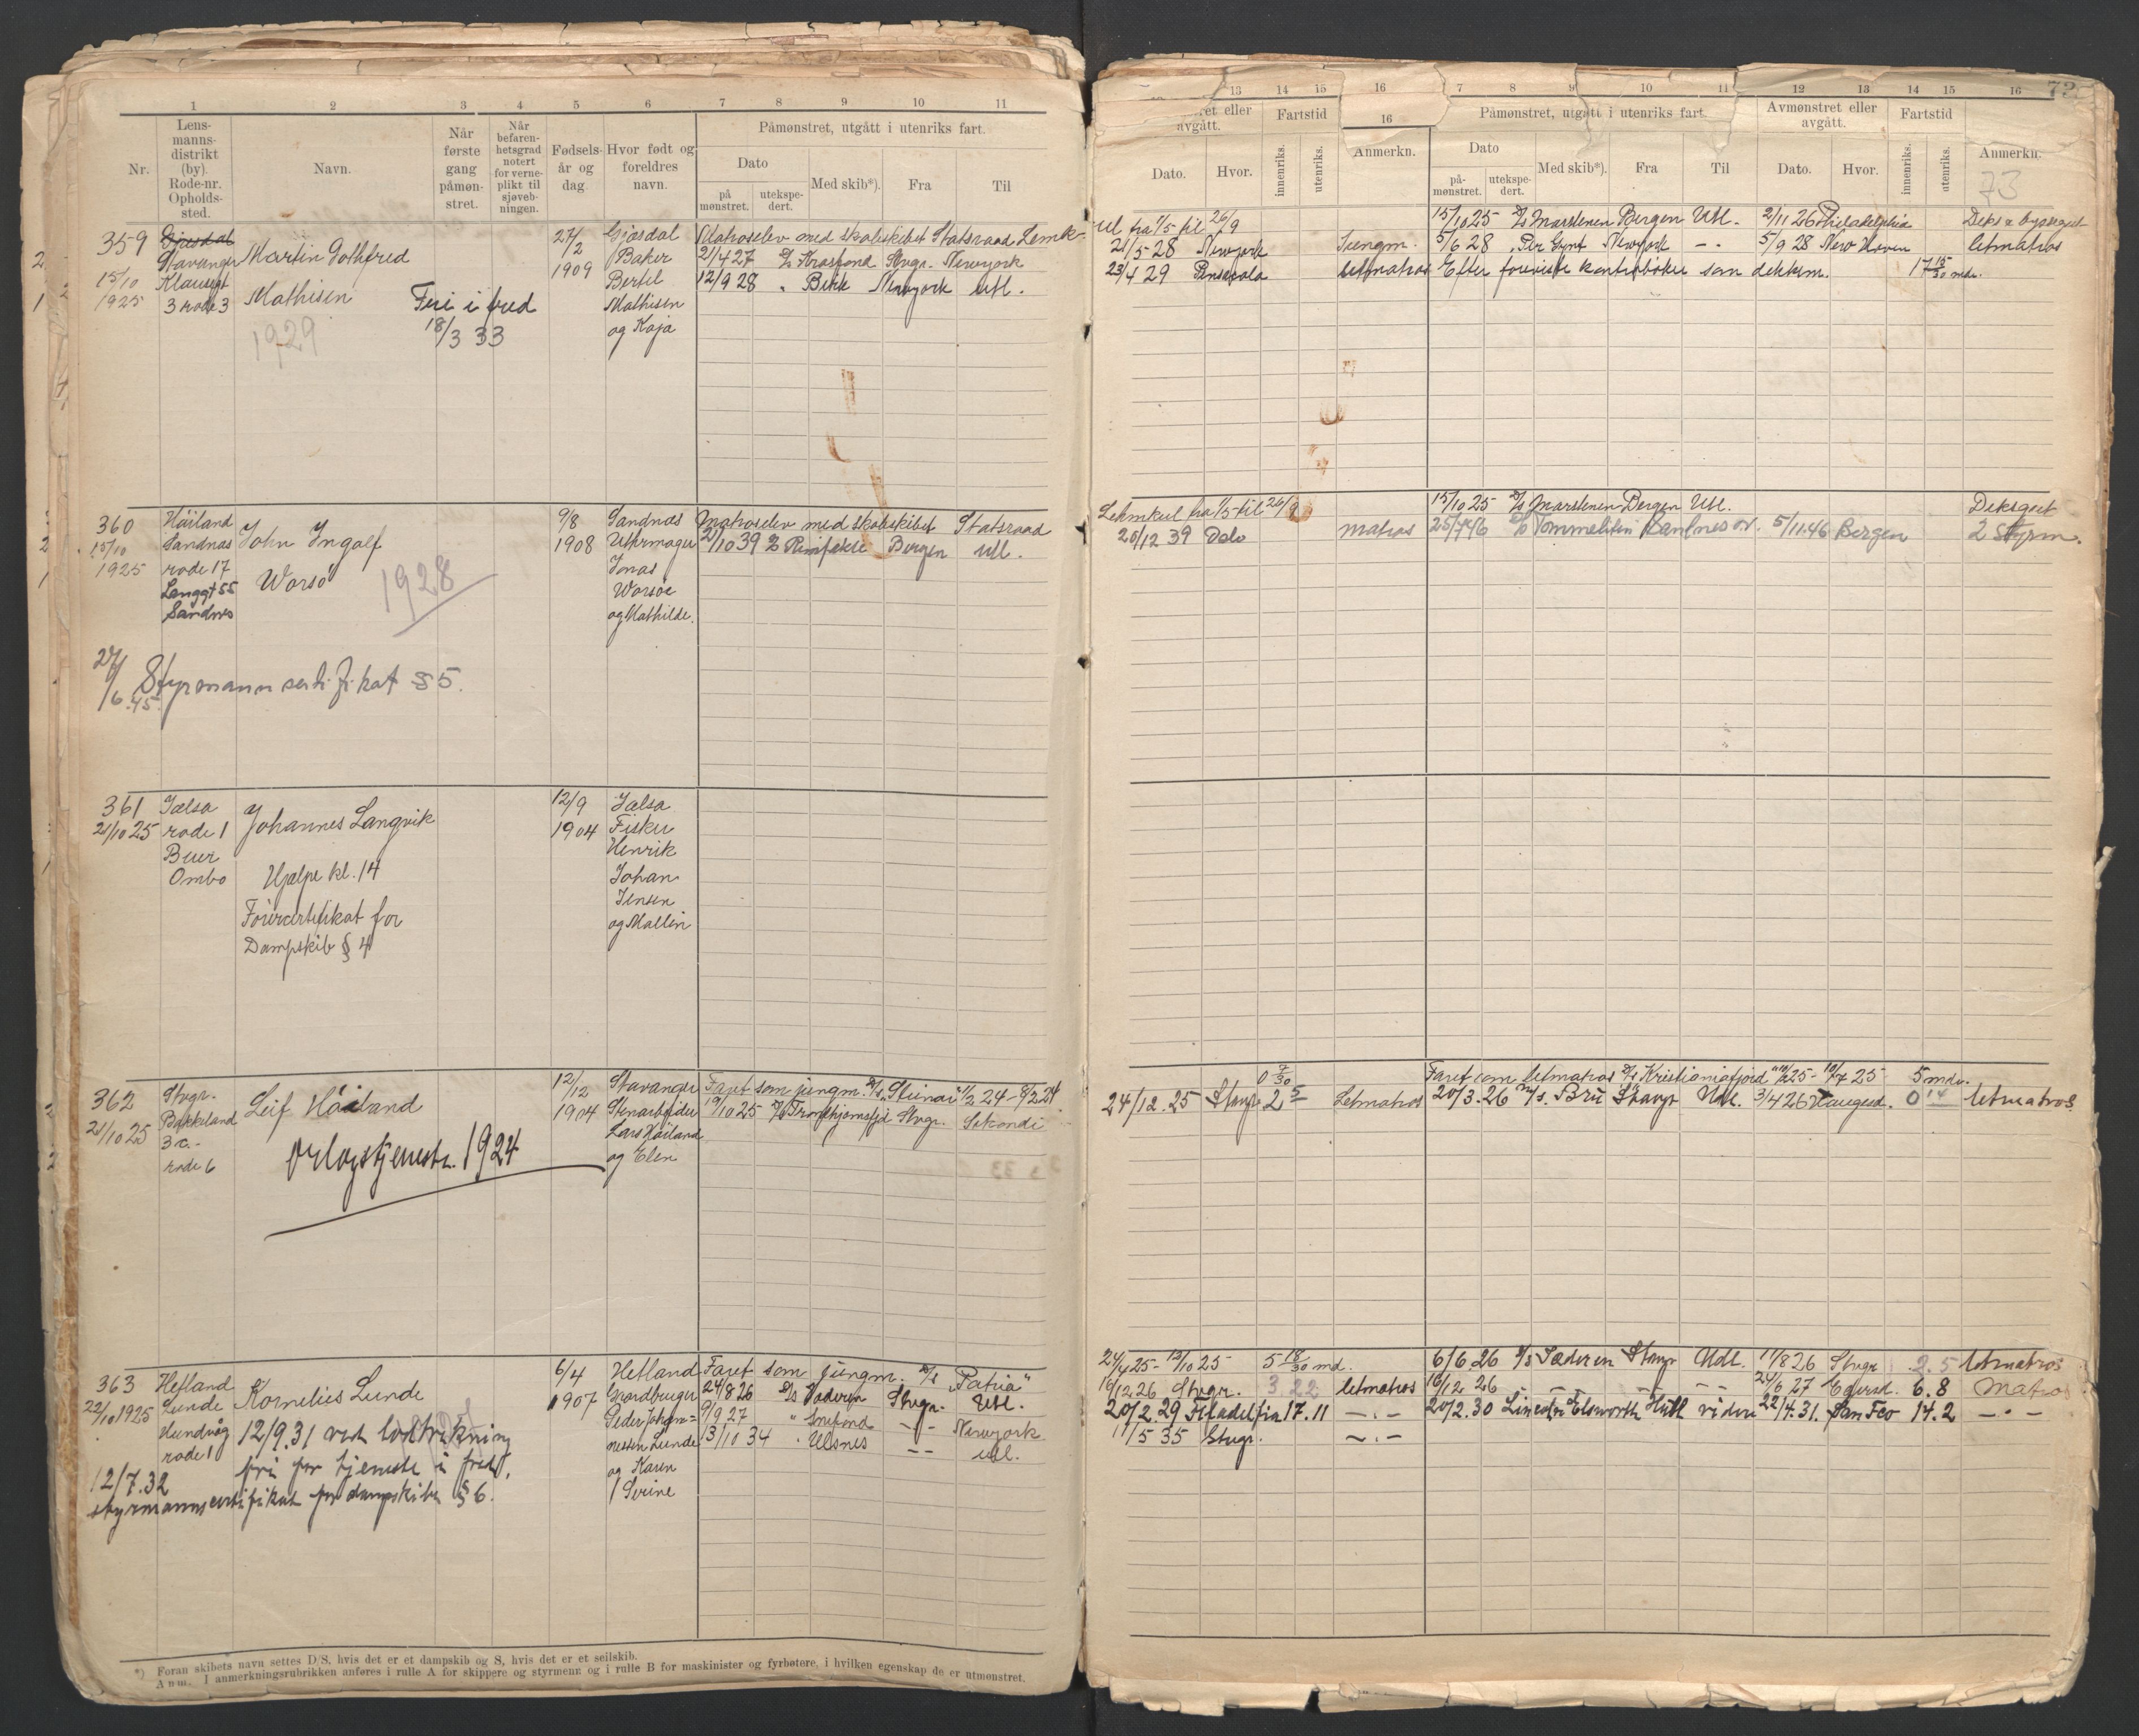 1 2 3 4 5 6 7 8 9 10 11
Nr.
Lens-
manns-
distrikt
(by).
Rode-nr.
Opholds-
sted.
Navn.
Når
første
gang
påmøn-
stret.
Når
befaren-
hetsgrad
notert
for verne-
plikt til
sjøveb-
ningen.
Fødsels-
år og
dag.
Hvor født og
foreldres
navn.
Påmønstret, utgått i utenriks fart.
Dato
på
mønstret.
utekspe-
dert.
Med skib*).
Fra
Til
359
15/10
1925
Gjesdal
Stavanger
Klausegt
3 rode 3
Martin Gothfred
Mathisen
1929
Fri i fred
18/3 33
27/2
1909
Gjæsdal
Baker
Bertel
Mathisen
og Kaja
Matroselev med skoleskibet Statsraad Lemk-
21/4 27 Newyork
12/9 28 Newyork Utl.
360
15/10
1925
Håiland
Sandnæs
rode 17
Langgt 55
Sandnes
John Ingolf
Worsö
1928
9/8
1908
Sandnæs
Uhrmager
Jonas
Worsöe
og Mathilde.
Matroselev med skoleskibet Statsraad
2/10 39 Bergen Utl.
27/6.45. Styrmannsertifikat § 5.
361
21/10 25
Jælsa
rode 1
Buer
Ombo
Johannes Langvik
Hjælpe kl. 14
Förercertifikat for
Dampskib § 4
12/9
1904
Jælsa
Fisker
Henrik
Johan
Jensen
og Mallin
362
21/10 25
Stvgr.
Bakkeland
3 c.-
rode 6
Leif Håiland
Orlogstjeneste. 1924
12/12
1904
Stavanger
Stenarbeider
Lars Håiland
og Elen
Faret som jungm. D/s
19/10 25 D/s Trondhjemsfjd Stvgr. Sekondi
363
22/10 1925
Hetland
Lunde
Hundvåg
rode 1
Kornelius Lunde
12/9.31 ved lodtrekning
fri for tjeneste i fred.
12/7.32
styrmannscertifikat for dampskibe § 6.
6/4
1907
Hetland
Gardbruger
Peder Johan=
nessen Lunde
og Karen
Serine
Faret som jungm. D/s "Patria"
24/8 26 D/s Stvgr. Utl.
9/9 27 " -"- Newyork
13/10 34 " Ulsnes -- utl.
*) Foran skibets navn settes D/S, hvis det er et dampskib og S, hvis det er et seilskib.
Anm. I anmerkningsrubrikken anføres i rulle A for skippere og styrmenn og i rulle B for maskinister og fyrbøtere, i hvilken egenskap de er utmønstret.
13 14 15 16 7 8 9 10 11 12 13 14 15 16
73
avgått.
Dato.
Hvor.
Fartstid
innenriks.
utenriks.
16
Anmerkn.
Påmønstret, utgått i utenriks fart.
Dato
på-
mønstret.
utekspe-
dert.
Med skib*).
Fra
Til
Avmønstret eller
avgått.
Dato.
Hvor.
Fartstid
innenriks.
utenriks.
Anmerkn.
73
ul fra 1/5 til 26/9
15/10 25 D/s Marstenen Bergen Utl. 2/11 26 Philadelphia
21/5 28 Newyork Jungm. 5/6 28 "Per Gynt Newyork -- 5/9 28 New Haven letmatros
23/4 29 Pensacola letmatros Efter foreviste kontrabøker som dekksm. 17 15/30 mdr.
Lehmkul fra 1/5 til 26/9
15/10 25 D/s Marstenen Bergen Utl. Deksgut
20/12 39 Oslo matros 25/7 46 Tommeliten 5/11.46 Bergen 2 Styrm.
0 7/30
Faret som letmatros D/s Kristianiafjord 5 mdr.
24/12.25 Stvgr 2 5 Letmatros 20/3.26 M/s. Brü Stavgr Udl. 3/4 26 Haugesd. 0 14 letmatros
24/4 25 - 13/10 25 5 18/30 md. 6/6 26 D/s Stavgr Udl. 11/8 26 Stvgr 2.5 letmatros
16/12 26 Stvgr. 3 22 letmatros 16/12 26 24/6 27 Egersd. 6.8 Matros
20/2.29 Filadelfia 17.11 -.- 20/2.30 Lincoln Elsworth Hull videre 22/4.31. San Fco 14.2 -"-
11/5 35 Stvgr. -.-